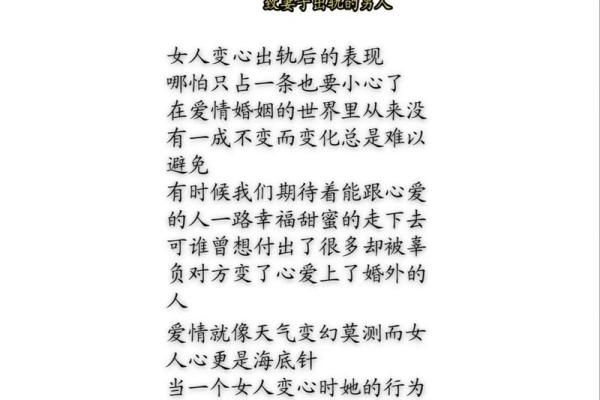 致妻子出轨的男人
女人变心出轨后的表现
哪怕只占一条也要小心了
在爱情婚姻的世界里从来没
有一成不变而变化总是难以
避免
有时候我们期待着能跟心爱
的人一路幸福甜蜜的走下去
可谁曾想付出了很多却被辜
负对方变了心爱上了婚外的
人
爱情就像天气变幻莫测而女
人心更是海底针
当一个女人变心时她的行为